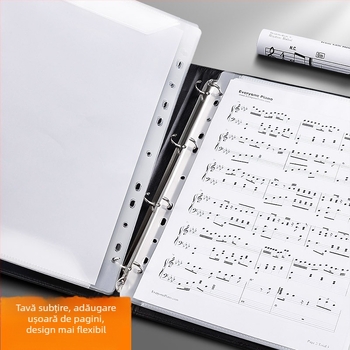 Everyone Piano
Tavă subțire, adăugare
ușoară de pagini,
design mai flexibil